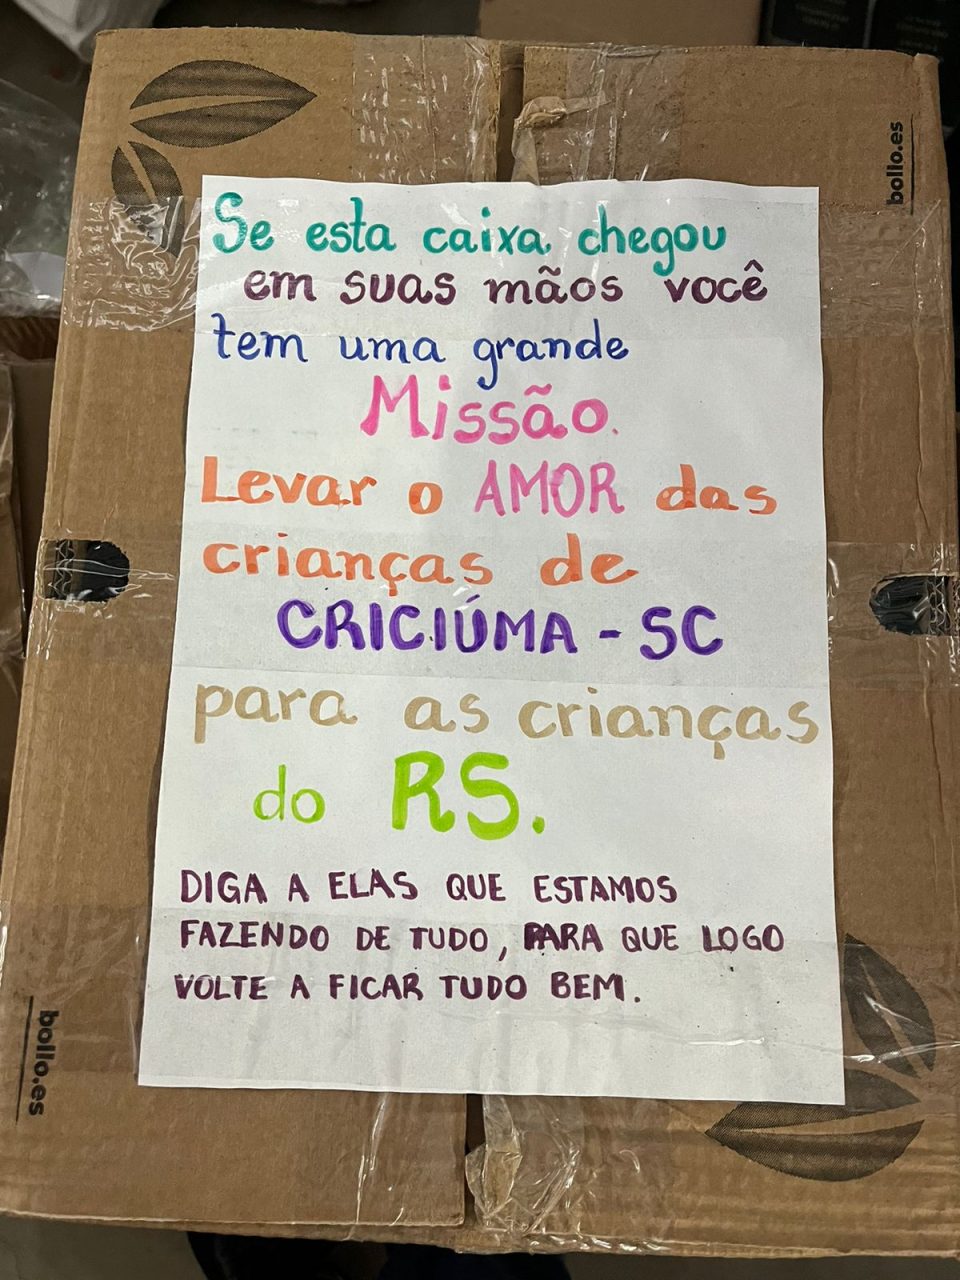 bollo.es
Se esta caixa chegou
em suas mãos você
tem uma grande
Missão.
Levar o AMOR das
crianças de
CRICIÚMA - SC
para as crianças
do RS.
DIGA A ELAS QUE ESTAMOS
FAZENDO DE TUDO, PARA QUE LOGO
VOLTE A FICAR TUDO BEM.
bollo.es